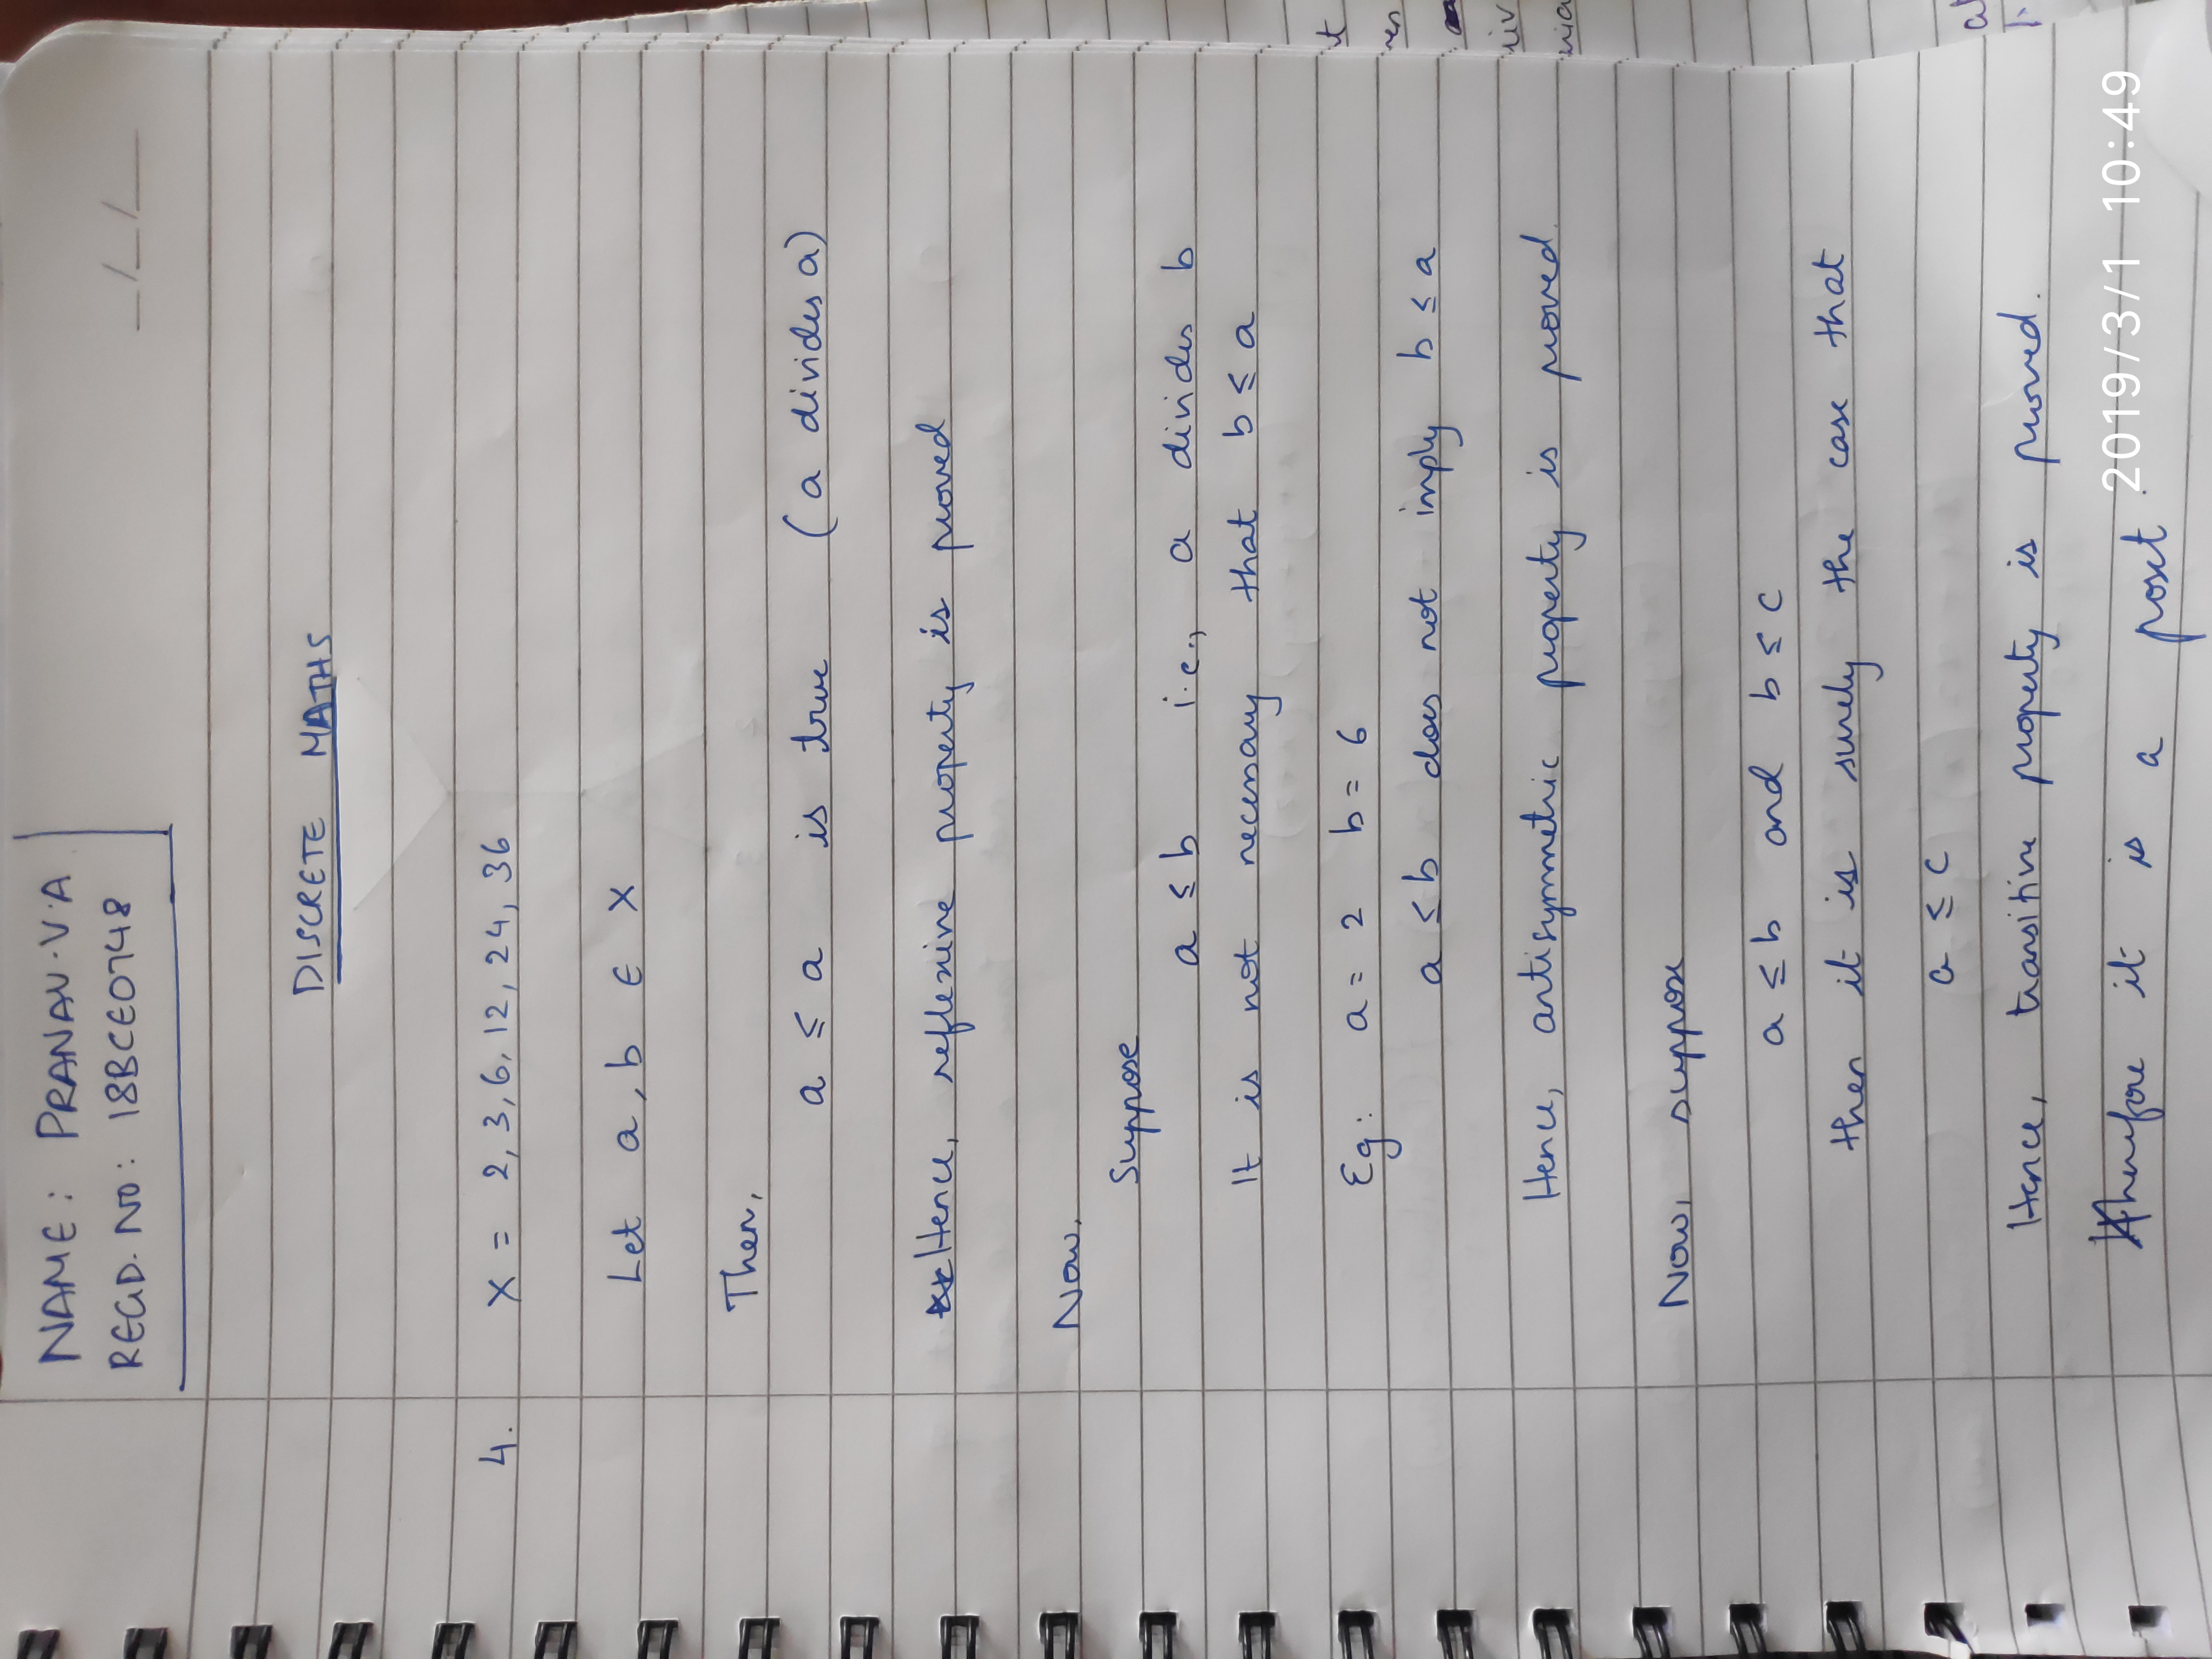 NAME: PRANAV.V.A
REGD.NO: 18BCE0748
_/_/_
DISCRETE MATHS
4. X = 2,3,6,12,24,36
Let a,b ∈ X
Then,
a ≤ a is true (a divides a)
Hence, reflexive property is proved
Now,
Suppose
a ≤ b i.e., a divides b
It is not necessary that b ≤ a
Eg: a = 2 b = 6
a ≤ b does not imply b ≤ a
Hence, antisymmetric property is proved
Now, suppose
a ≤ b and b ≤ c
then it is surely the case that
a ≤ c
Hence, transitive property is proved.
Therefore it is a poset.
2019/3/1 10:49